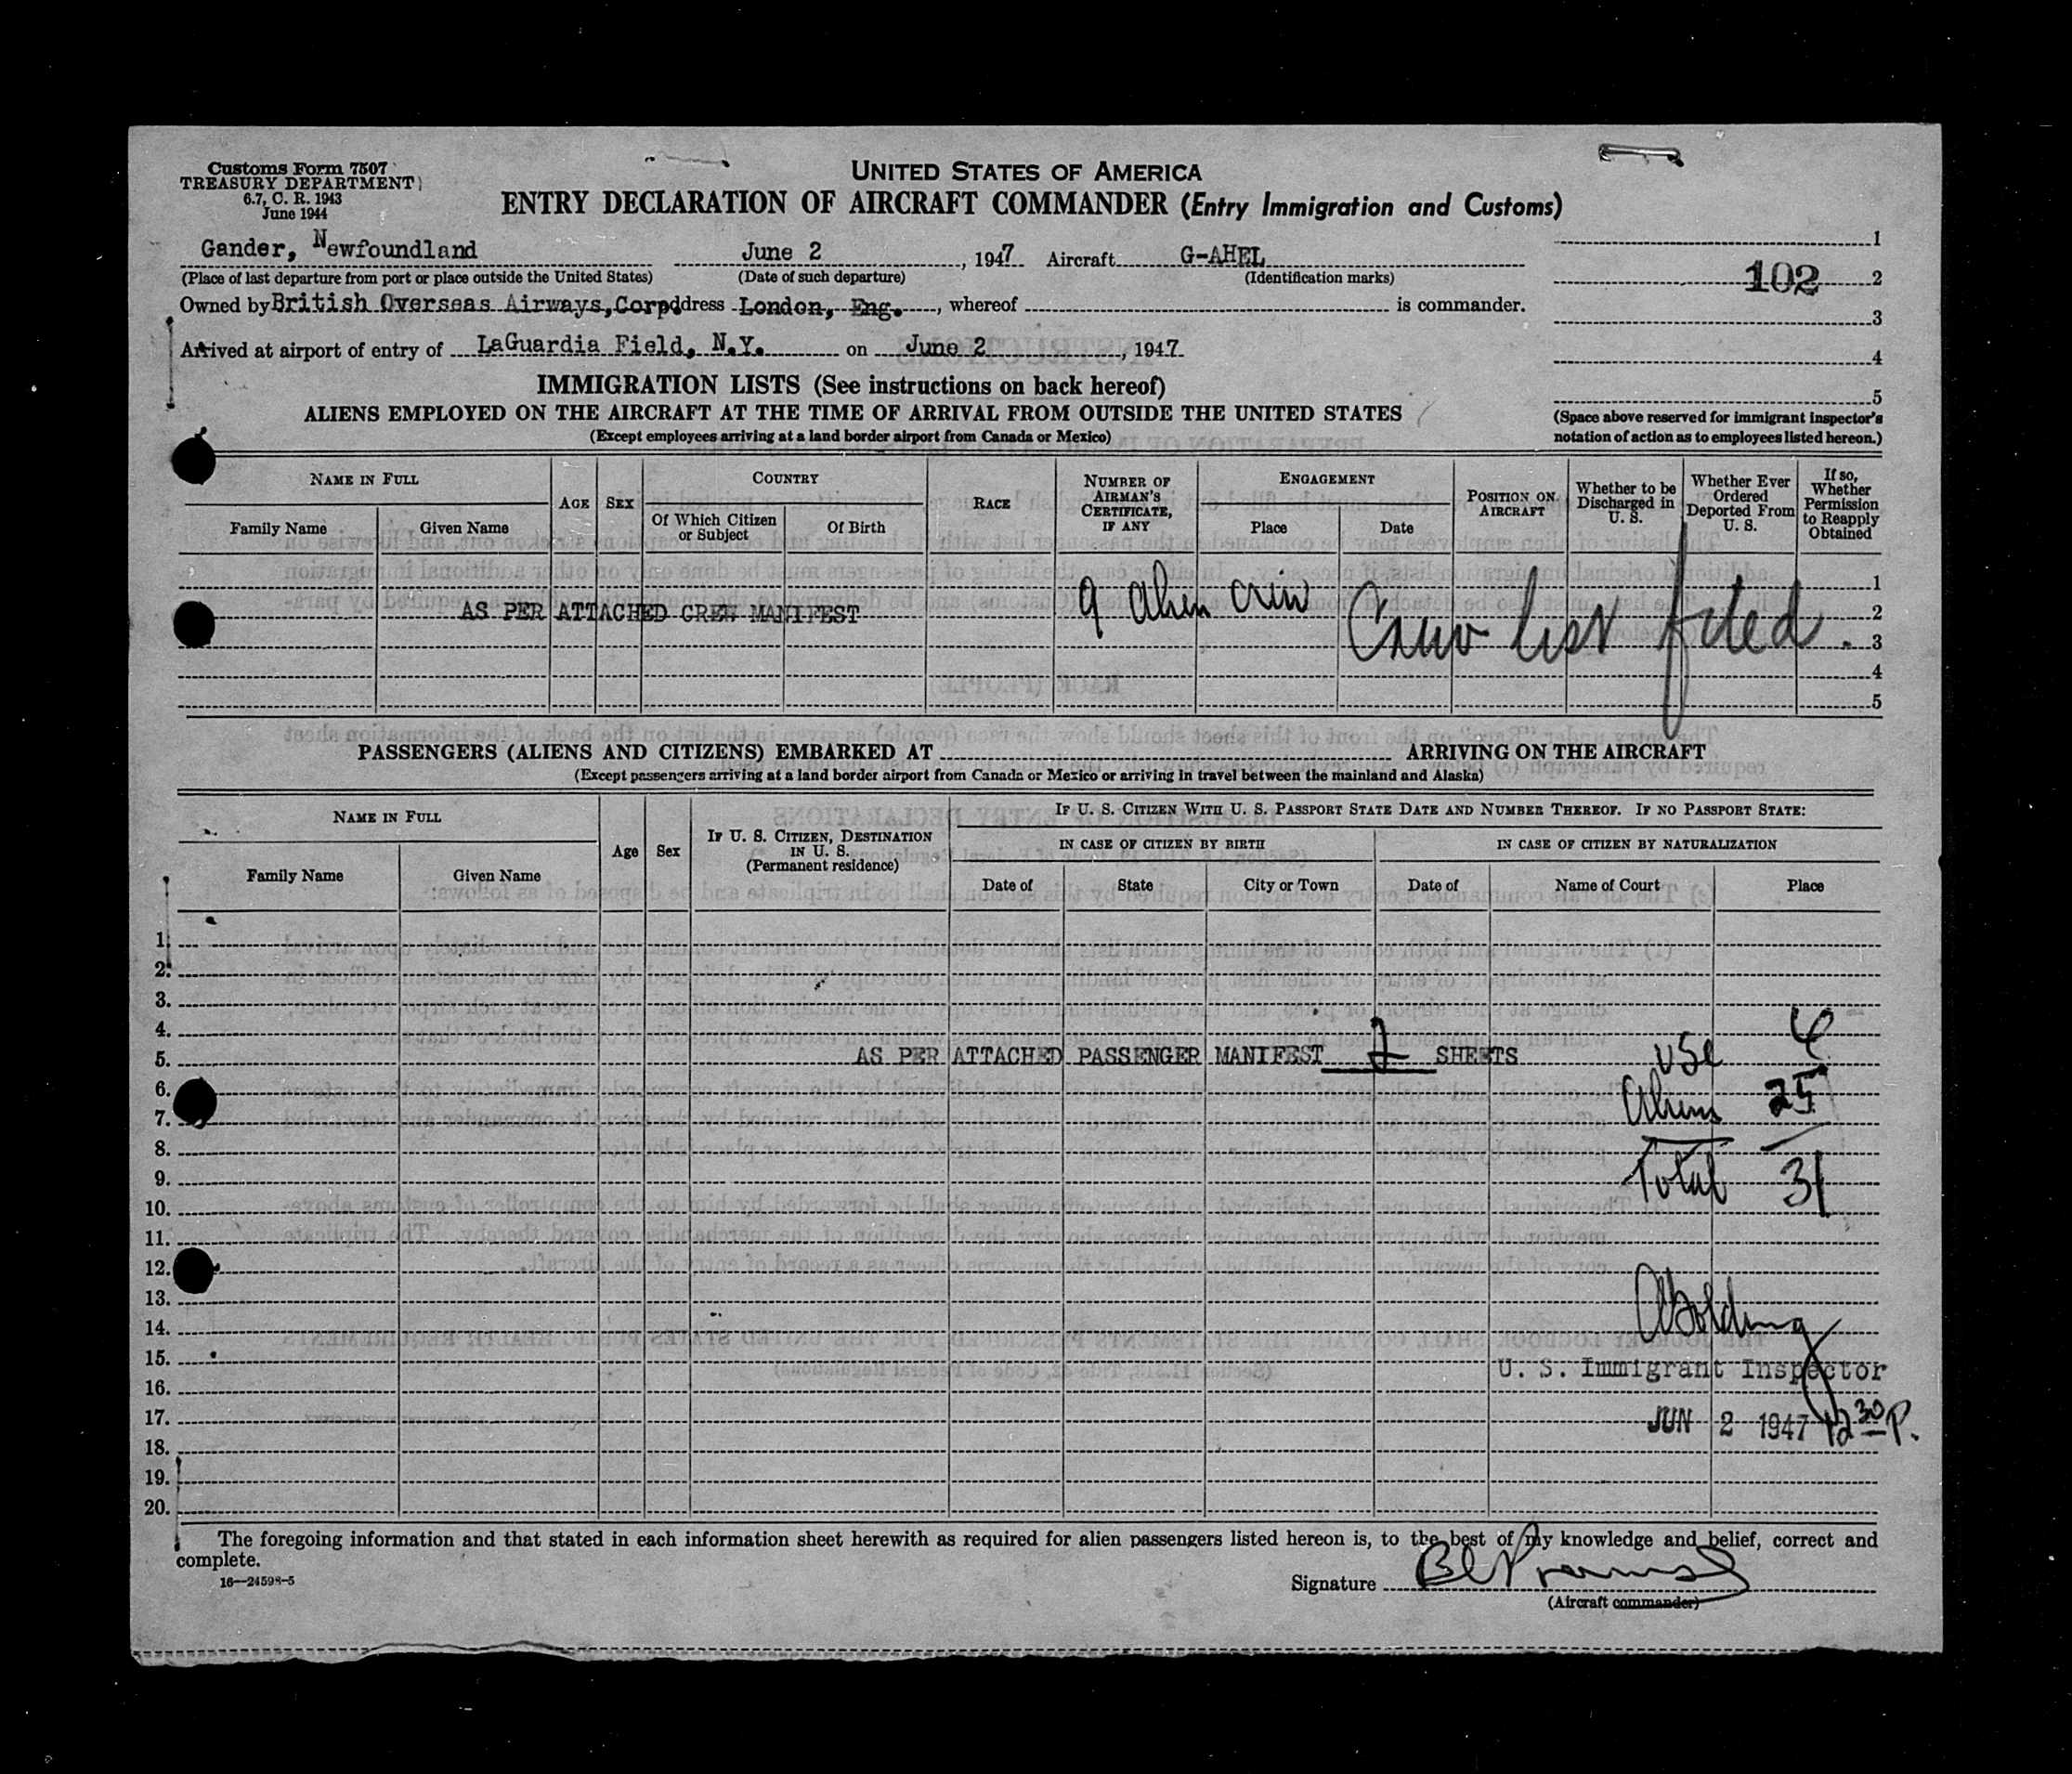 Customs Form 7507
TREASURY DEPARTMENT
6.7, C. R. 1943
June 1944
UNITED STATES OF AMERICA
ENTRY DECLARATION OF AIRCRAFT COMMANDER (Entry Immigration and Customs)
Gander, Newfoundland June 2, 1947 Aircraft G-AHEL
(Place of last departure from port or place outside the United States) (Date of such departure) (Identification marks)
Owned by British Overseas Airways, Corp. ddress London, Eng., whereof is commander.
Arrived at airport of entry of LaGuardia Field, N.Y. on June 2, 1947
1
102 2
3
4
5
(Space above reserved for immigrant inspector's
notation of action as to employees listed hereon.)
IMMIGRATION LISTS (See instructions on back hereof)
ALIENS EMPLOYED ON THE AIRCRAFT AT THE TIME OF ARRIVAL FROM OUTSIDE THE UNITED STATES
(Except employees arriving at a land border airport from Canada or Mexico)
NAME IN FULL
Family Name Given Name
AGE SEX
COUNTRY
Of Which Citizen or Subject
Of Birth
RACE
NUMBER OF AIRMAN'S CERTIFICATE, IF ANY
ENGAGEMENT
Place Date
POSITION ON AIRCRAFT
Whether to be Discharged in U. S.
Whether Ever Ordered Deported From U. S.
If so, Whether Permission to Reapply Obtained
1
AS PER ATTACHED CREW MANIFEST 9 alien crew 2
Crew list filed. 3
4
5
PASSENGERS (ALIENS AND CITIZENS) EMBARKED AT ARRIVING ON THE AIRCRAFT
(Except passengers arriving at a land border airport from Canada or Mexico or arriving in travel between the mainland and Alaska)
NAME IN FULL
Family Name Given Name
Age Sex
IF U. S. CITIZEN, DESTINATION IN U. S.
(Permanent residence)
IF U. S. CITIZEN WITH U. S. PASSPORT STATE DATE AND NUMBER THEREOF. IF NO PASSPORT STATE:
IN CASE OF CITIZEN BY BIRTH
Date of State City or Town
IN CASE OF CITIZEN BY NATURALIZATION
Date of Name of Court Place
1.
2.
3.
4.
5. AS PER ATTACHED PASSENGER MANIFEST 2 SHEETS USC
6.
7. Aliens 25
8.
9. Total 31
10.
11.
12.
13.
14.
15. U. S. Immigrant Inspector
16.
17. JUN 2 1947 12 30 P.
18.
19.
20.
The foregoing information and that stated in each information sheet herewith as required for alien passengers listed hereon is, to the best of my knowledge and belief, correct and
complete.
16—24598-5
Signature
(Aircraft commander)